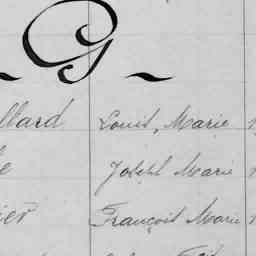 ~ G ~
llard Louis, Marie
Joseph Marie
ier François Marie